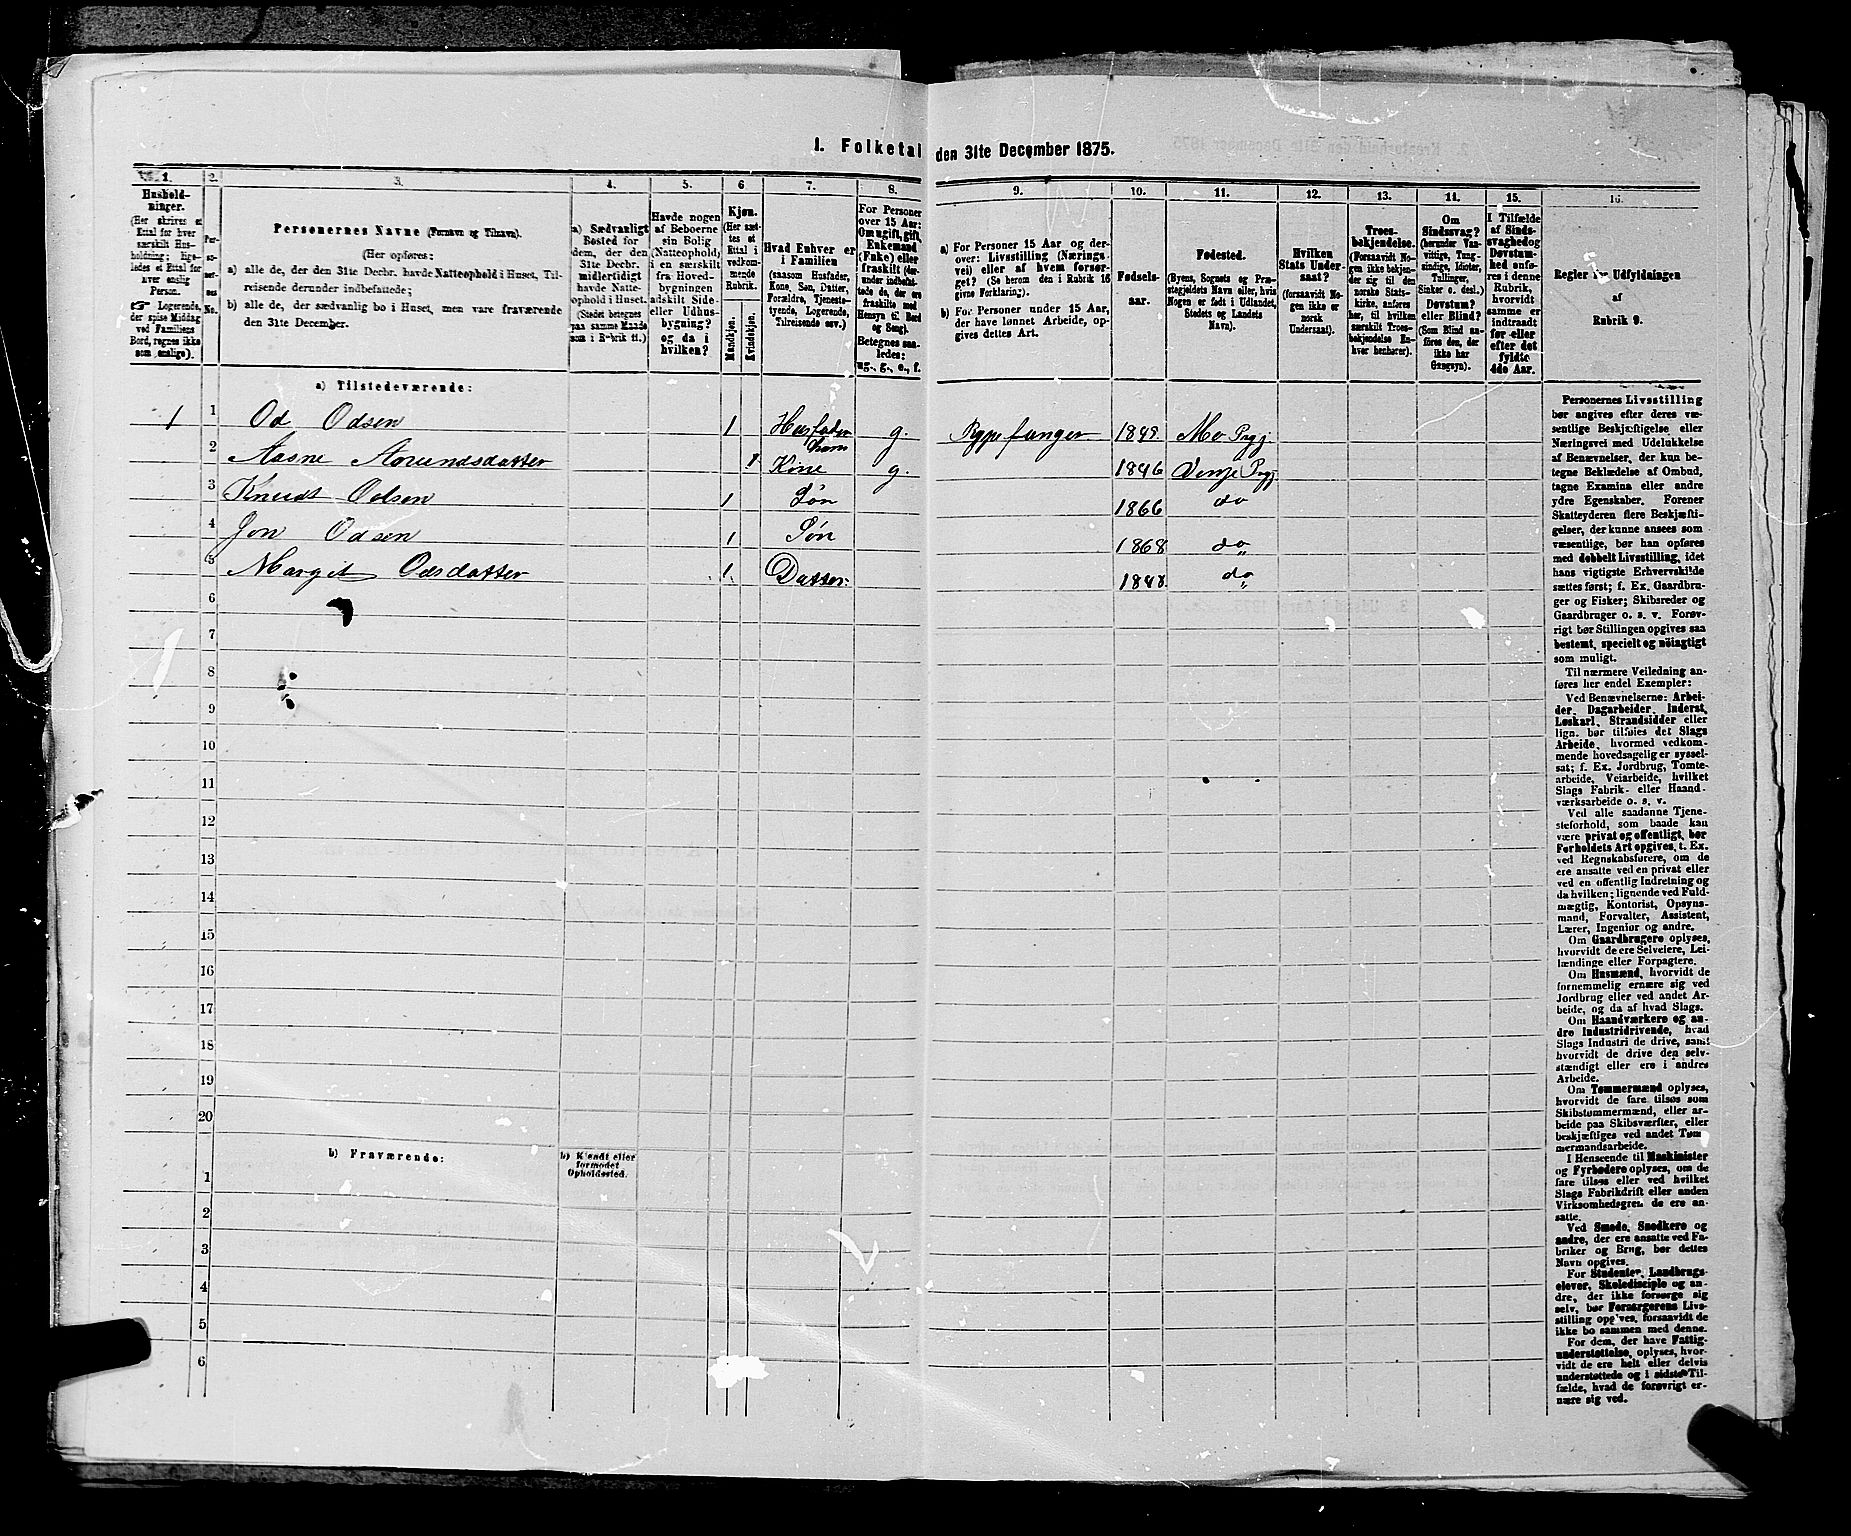 1. Folketal den 31te December 1875.
1. 2. 3. 4. 5. 6 7. 8. 9. 10. 11. 12. 13. 14. 15. 16.
Hushold-
ninger.
(Her skrives et
Ettal for hver
særskilt Hus-
holdning; lige-
ledes et Ettal for
hver enslig
Person.
☞ Logerende,
der spise Middag
ved Familiens
Bord, regnes ikke
som enslige).
Per-
so-
ner-
nes
No.
Personernes Navne (Fornavn og Tilnavn).
(Her opføres:
a) alle de, der den 31te Decbr. havde Natteophold i Huset, Til-
reisende derunder indbefattede;
b) alle de, der sædvanlig bo i Huset, men vare fraværende
den 31te December.
a) Sædvanligt
Bosted for
dem, der den
31te Decbr.
midlertidigt
havde Natte-
ophold i Huset.
(Stedet betegnes
paa samme Maade
som i Rubrik 11.)
Havde nogen
af Beboerne
sin Bolig
(Natteophold)
i en særskilt
fra Hoved-
bygningen
adskilt Side-
eller Udhus-
bygning?
og da i
hvilken?
Kjøn.
(Her sæt-
tes et
Ettal i
vedkom-
mende
Rubrik.
Mandkjøn.
Kvindekjøn.
Hvad Enhver er
i Familien
(saasom Husfader,
Kone, Søn, Datter,
Forældre, Tjeneste-
tyende, Logerende,
Tilreisende osv.)
For Personer
over 15 Aar:
Om ugift, gift,
Enkemand
(Enke) eller
fraskilt (der-
under indbefat-
tede de, der ere
fraskilte med
Hensyn til Bord
og Seng).
Betegnes saa-
ledes:
ug., g., e., f.
a) For Personer 15 Aar og der-
over: Livsstilling (Nærings-
vei) eller af hvem forsør-
get? (Se herom den i Rubrik 16
givne Forklaring).
b) For Personer under 15 Aar,
der have lønnet Arbeide, op-
gives dettes Art.
Fødsels-
aar.
Fødested.
(Byens, Sognets og Præ-
stegjeldets Navn eller, hvis
Nogen er født i Udlandet,
Stedets og Landets
Navn).
Hvilken
Stats Under-
saat?
(forsaavidt No-
gen ikke er
norsk
Undersaat).
Troes-
bekjendelse.
(Forsaavidt No-
gen ikke bekjen-
der sig til den
norske Stats-
kirke, anføres
her, til hvilken
særskilt Troes-
bekjendelse En-
hver henhører).
Om
Sindssvag?
(herunder Van-
vittige, Tung-
sindige, Idioter,
Tullinger,
Sinker o. desl.)
Døvstum?
eller Blind?
(Som Blind an-
føres den, der
ikke har
Gangsyn).
I Tilfælde
af Sinds-
svaghed og
Døvstum-
hed anfø-
res i denne
Rubrik,
hvorvidt
samme er
indtraadt
før eller
efter det
fyldte
4de Aar.
Regler for Udfyldningen
af
Rubrik 9.
a) Tilstedeværende:
1 1 Od Odsen 1 Husfader g. Rypefanger 1849 Mo Prgj.
2 Aasne Amundsdatter 1 Kone g. 1846 Vinje Prgj
3 Knudt Odsen 1 Søn 1866 do
4 Jon Odsen 1 Søn 1868 do
5 Margit Odsdatter 1 Datter: do
6
7
8
9
10
11
12
13
14
15
16
17
18
19
20
b) Fraværende:
b) Kjendt eller
formodet
Opholdssted.
1
2
3
4
5
6
Personernes Livsstilling
bør angives efter deres væ-
sentlige Beskjæftigelse eller
Næringsvei med Udelukkelse
af Benævnelser, der kun be-
tegne Beklædelse af Ombud,
tagne Examina eller andre
ydre Egenskaber. Forener
Skatteyderen flere Beskjæfti-
gelser, der kunne ansees som
væsentlige, bør han opføres
med dobbelt Livsstilling, idet
hans vigtigste Erhvervskilde
sættes først; f. Ex. Gaardbru-
ger og Fisker; Skibsreder og
Gaardbruger o. s. v. Forøv-
rigt bør Stillingen opgives saa
bestemt, specielt og nøiagtigt
som muligt.
Til nærmere Veiledning an-
føres her endel Exempler:
Ved Benævnelserne: Arbei-
der, Dagarbeider, Inderst,
Løskarl, Strandsidder eller
lign. bør tilføies det Slags
Arbeide, hvormed vedkom-
mende hovedsagelig er syssel-
sat; f. Ex. Jordbrug, Tomte-
arbeide, Veiarbeide, hvilket
Slags Fabrik- eller Haand-
værksarbeide o. s. v.
Ved alle saadanne Tjene-
steforhold, som baade kan
være privat og offentligt, bør
Forholdets Art opgives, t. Ex.
ved Regnskabsførere, om de
ere ansatte ved en privat eller
ved en offentlig Indretning og
da hvilken; lignende ved Fuld-
mægtig, Kontorist, Opsyns-
mand, Forvalter, Assistent,
Lærer, Ingeniør og andre.
Om Gaardbrugere oplyses,
hvorvidt de ere Selveiere, Lei-
lændinge eller Forpagtere.
Om Husmænd, hvorvidt de
fornemmelig ernære sig ved
Jordbrug eller ved andet Ar-
beide, og da af hvad Slags.
Om Haandværkere og an-
dre Industridrivende, hvad
Slags Industri de drive, samt
hvorvidt de drive den selv-
stændigt eller ere i andres
Arbeide.
Om Tømmermænd oplyses,
hvorvidt de fare tilsøs som
Skibstømmermænd, eller ar-
beide paa Skibsværfter, eller
beskjæftiges ved andet Tøm-
mermandsarbeide.
I Henseende til Maskinister
og Fyrbødere oplyses, om de
fare tilsøs eller ved hvilket
Slags Fabrikdrift eller anden
Virksomhedsgren de ere an-
satte.
Ved Smede, Snedkere og
andre, der ere ansatte ved Fa-
briker og Brug, bør dettes
Navn opgives.
For Studenter, Landbrugs-
elever, Skoledisciple og an-
dre, der ikke forsørge sig
selv, bør Forsørgerens Livs-
stilling opgives, forsaavidt de
ikke bo sammen med denne.
For dem, der have Fattig-
understøttelse, oplyses, hvor-
vidt de ere helt eller delvis
understøttede og i sidste Til-
fælde, hvad de forøvrigt er-
nære sig ved.